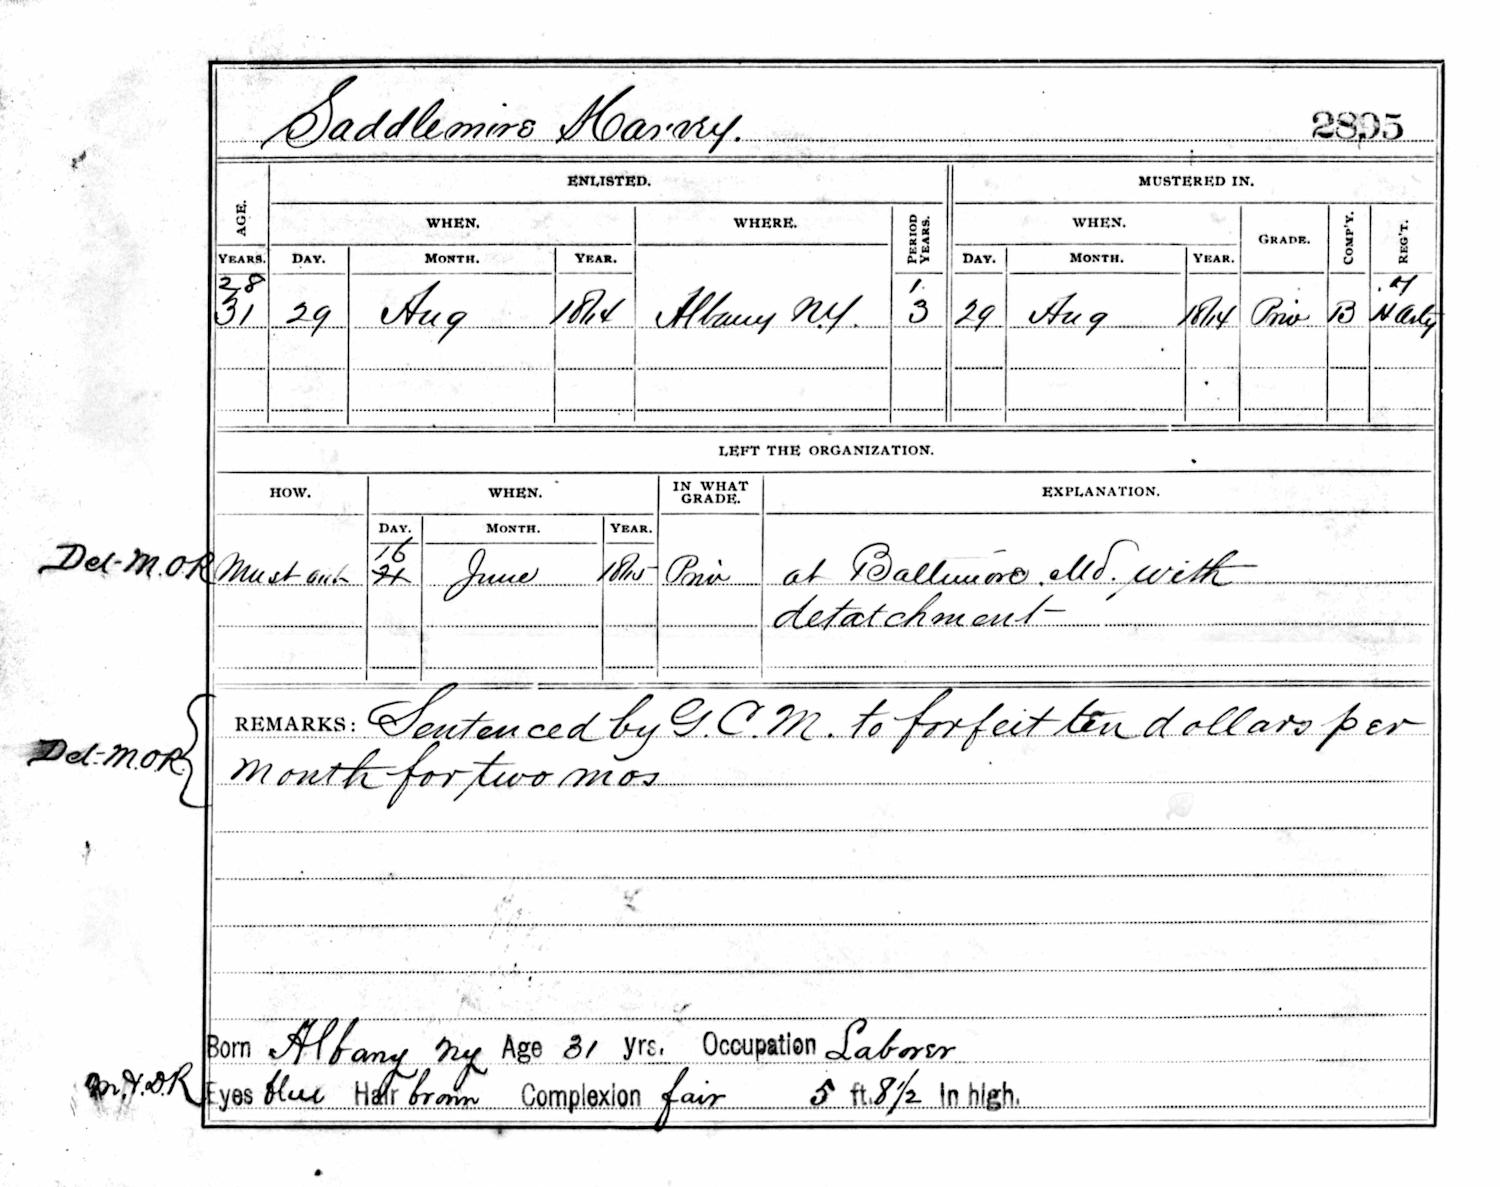 Saddlemire Harvey. 2895
ENLISTED. MUSTERED IN.
AGE. WHEN. WHERE. PERIOD YEARS. WHEN. GRADE. COMP'Y. REG'T.
YEARS. DAY. MONTH. YEAR. DAY. MONTH. YEAR.
28 1
31 29 Aug 1864 Albany N.Y. 3 29 Aug 1864 Priv B H Arty
LEFT THE ORGANIZATION.
HOW. WHEN. IN WHAT GRADE. EXPLANATION.
DAY. MONTH. YEAR.
16
Del-M.O.R Must out June 1865 Priv at Baltimore. Md. with
detatchment
REMARKS: Sentenced by G.C.M. to forfeit ten dollars per
Del-M.O.R month for two mos
Born Albany NY Age 31 yrs. Occupation Laborer
Eyes blue Hair brown Complexion fair 5 ft. 8 1/2 in high.